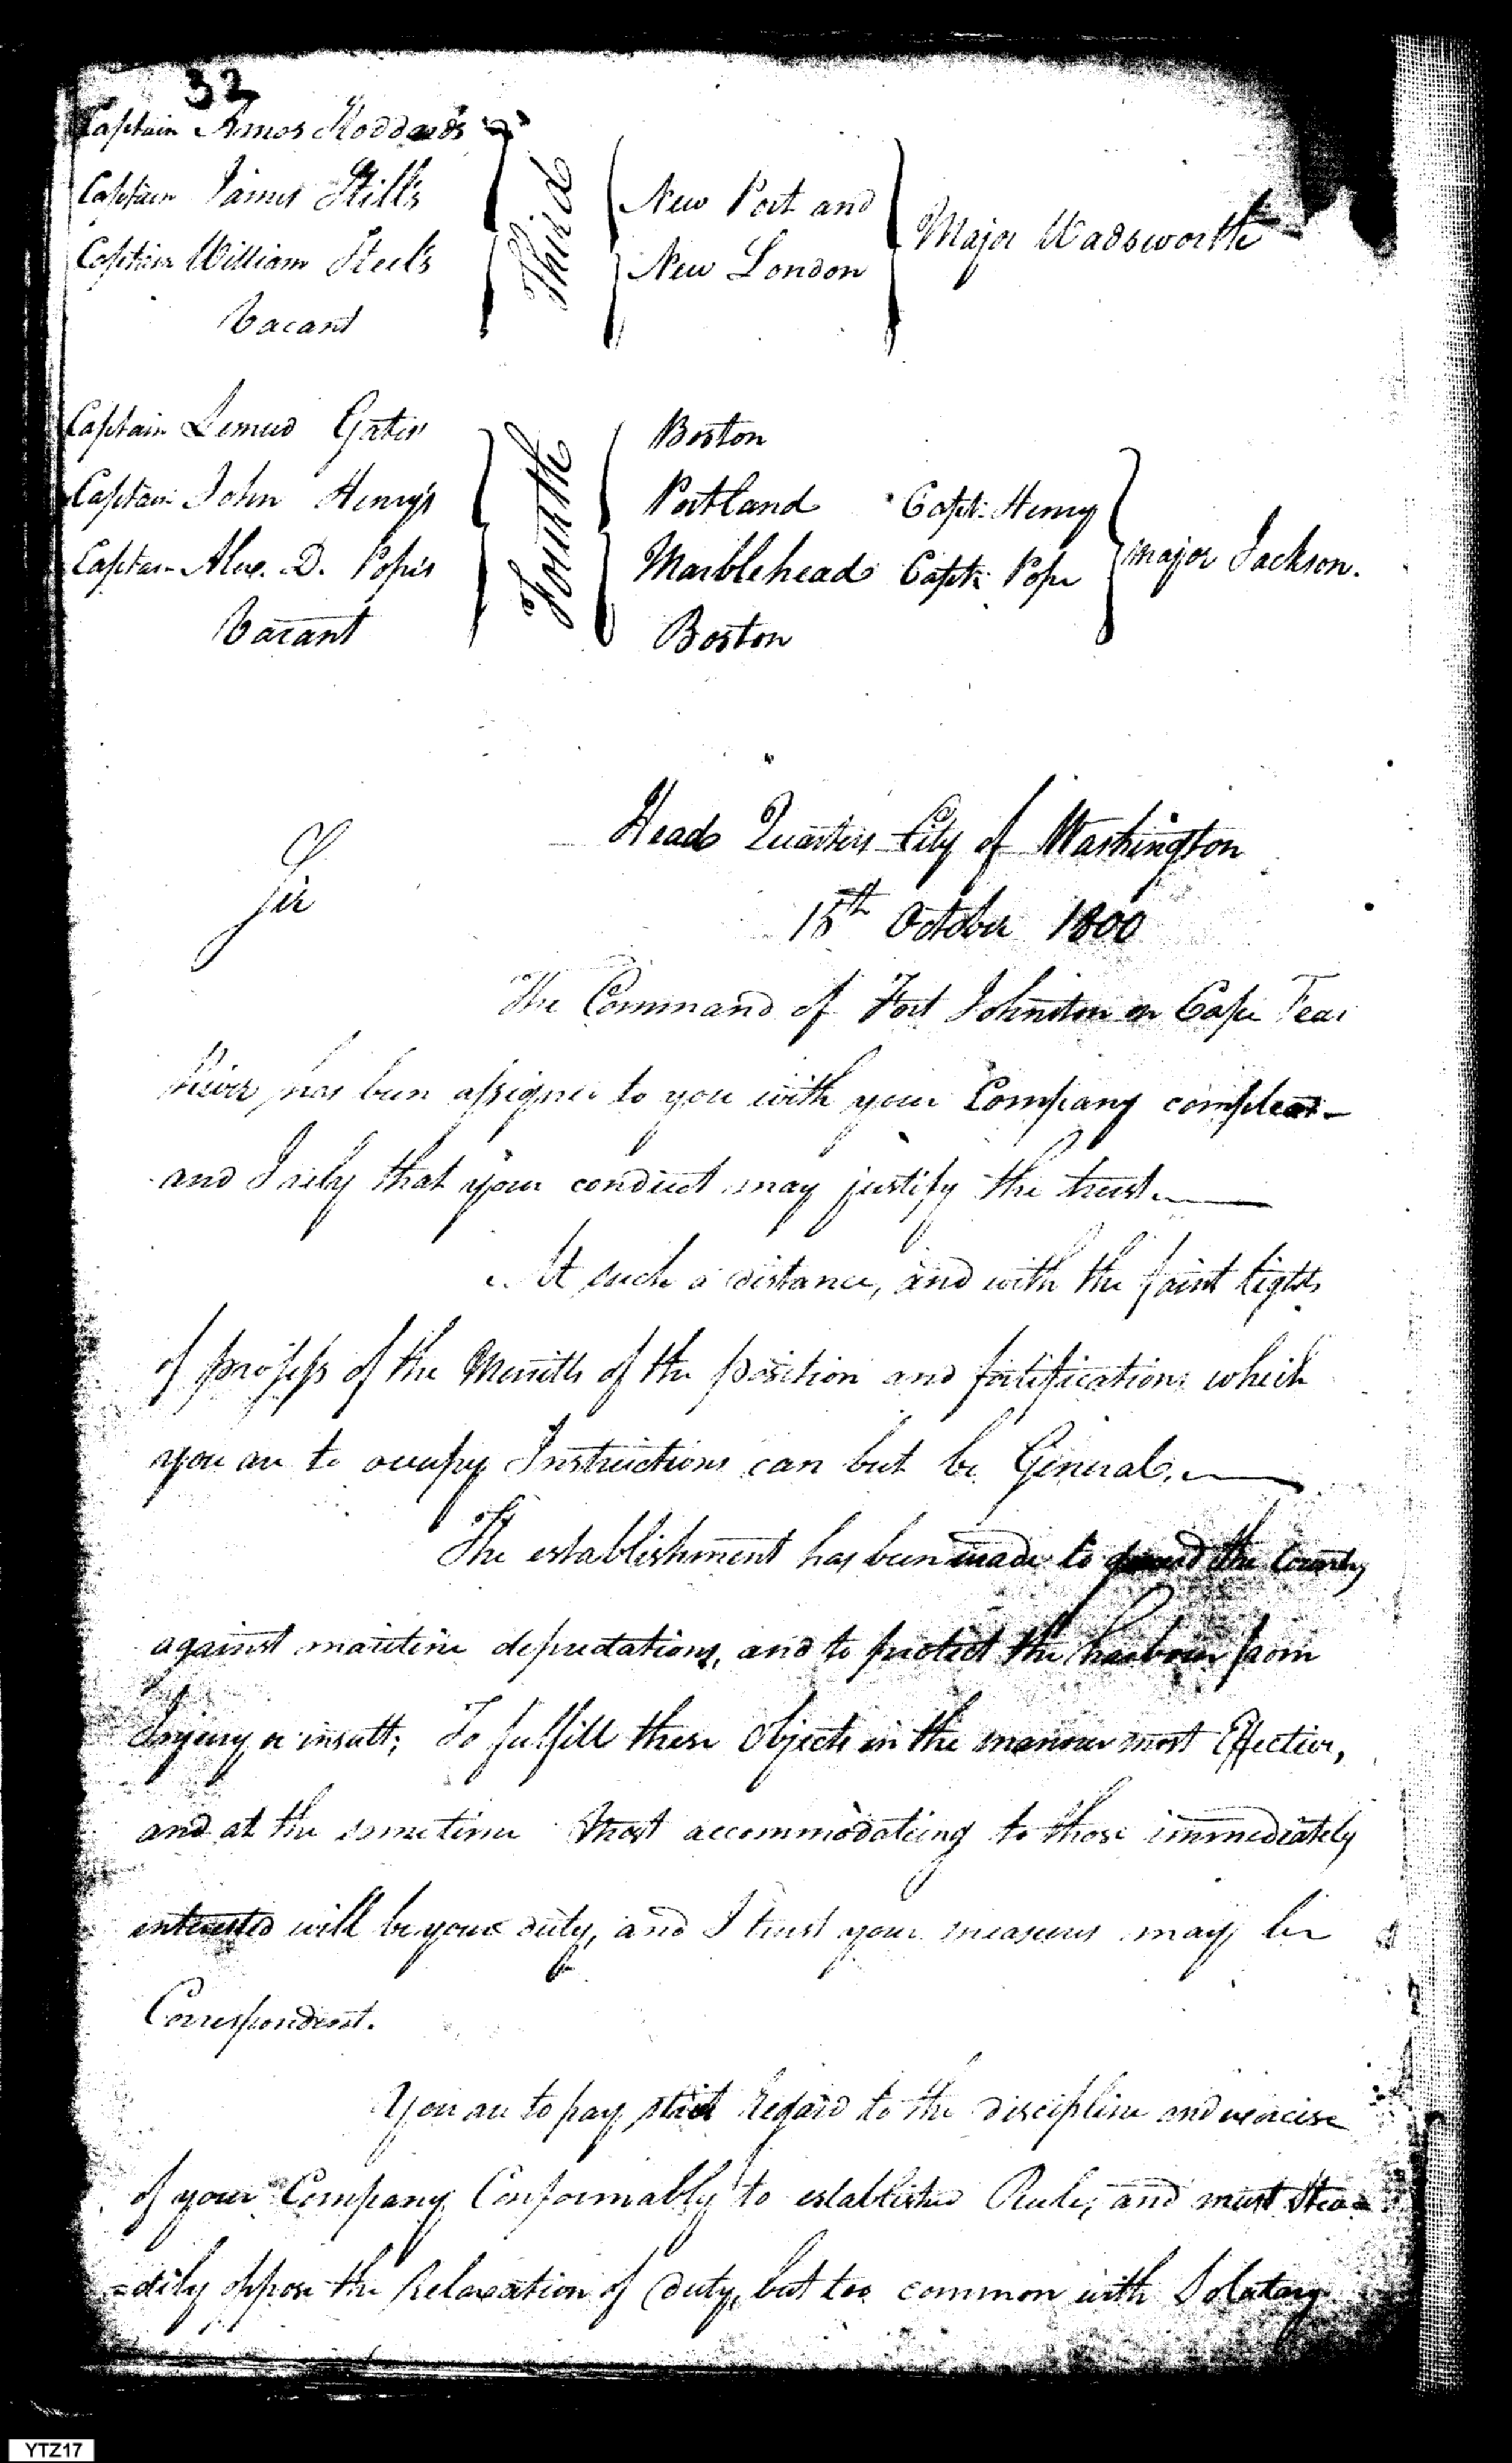 32
Captain Amos Stoddard's
Captain James Still's
Captain William Steel's
Vacant
Third
New Port and
New London
Major Wadsworth
Captain Lemuel Gates'
Captain John Henry's
Captain Alex. D. Pope's
Vacant
Fourth
Boston
Portland Capt. Henry
Marblehead Capt. Pope
Boston
Major Jackson.
Head Quarters City of Washington
15th October 1800
Sir
The Command of Fort Johnston on Cape Fear
River, has been assigned to you with your Company compleat
and I rely that your conduct may justify the trust.
At such a distance, and with the faint lights
of the Merritts of the position and fortifications which
you are to occupy Instructions can but be General.
The establishment has been made to guard the Country
against maritime depredations, and to protect the harbour from
Injury or insult; To fulfill these Objects in the manner most Effective,
and at the same time most accommodateing to those immediately
interested will be your duty, and I trust your measures may be
Correspondent.
You are to pay strict Regard to the discipline and exercise
of your Company Conformably to established Rule, and must Stea=
=dily oppose the Relaxation of duty, but too common with Solatary
YTZ17